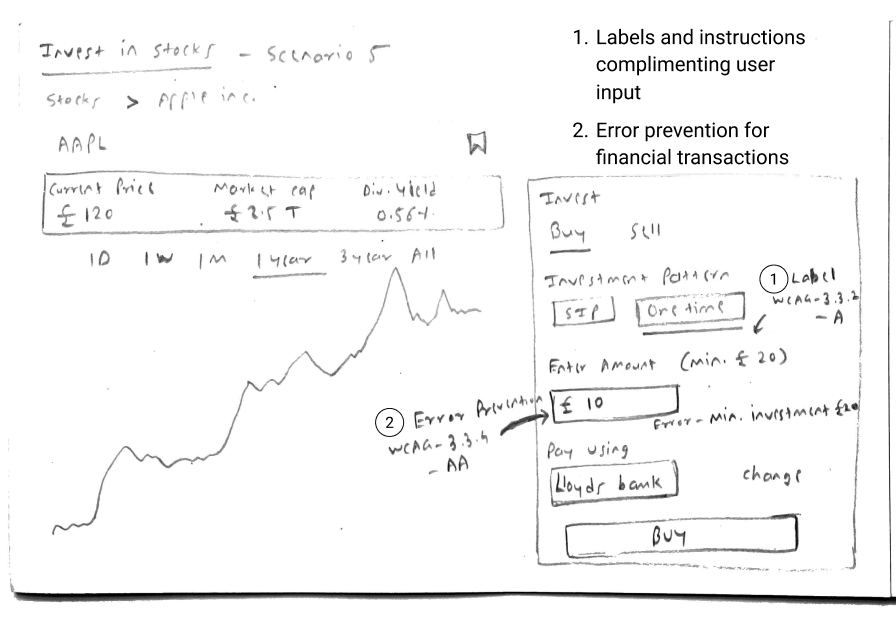 Invest in stocks - Scenario 5
Stocks > Apple inc.
AAPL
Current Price Market cap Div. yield
£ 120 £ 2.5 T 0.56%
1D 1W 1M 1 year 3 year All
1. Labels and instructions
complimenting user
input
2. Error prevention for
financial transactions
Invest
Buy Sell
Investment Pattern
SIP One time
1 Label
WCAG-3.3.2
- A
Enter Amount (min. £ 20)
£ 10
Error - Min. investment £20
2 Error Prevention
WCAG-3.3.4
- AA
Pay using
Lloyds bank change
BUY